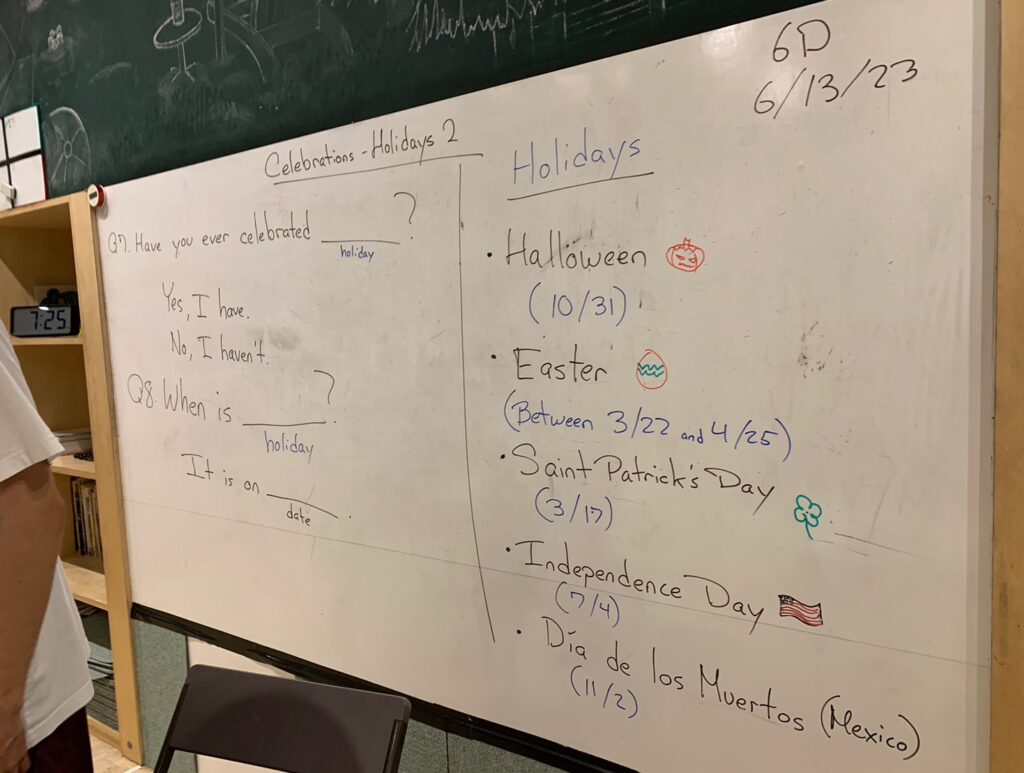 6D
6/13/23
Celebrations - Holidays 2
Q7. Have you ever celebrated ______?
holiday
Yes, I have.
No, I haven't.
Q8. When is ______?
holiday
It is on ______.
date
Holidays
• Halloween
(10/31)
• Easter
(Between 3/22 and 4/25)
• Saint Patrick's Day
(3/17)
• Independence Day
(7/4)
• Día de los Muertos (Mexico)
(11/2)
7:25